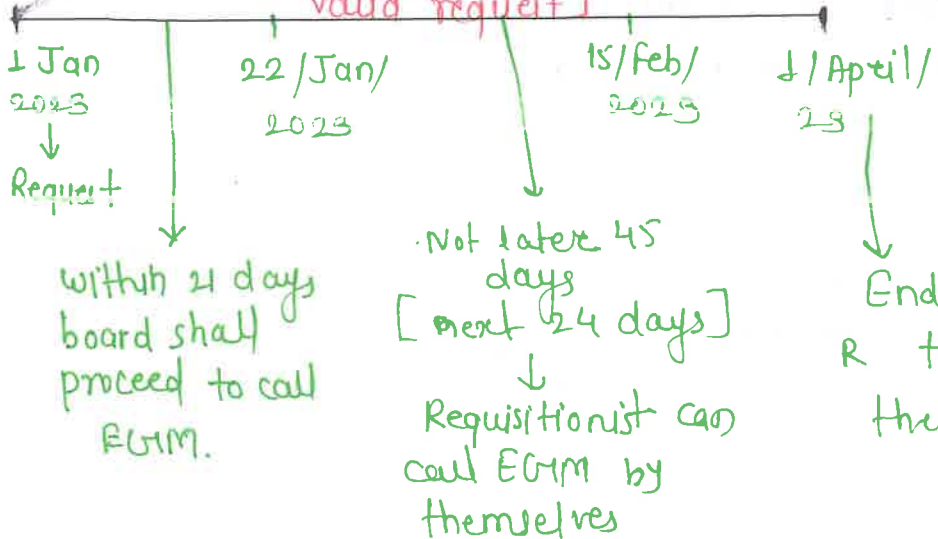 valid request]
1 Jan
2023
Request
22/Jan/
2023
15/Feb/
2023
1/April/
23
within 21 days
board shall
proceed to call
EGM.
Not later 45
days
[next 24 days]
Requisitionist can
call EGM by
themselves
End
R t
the